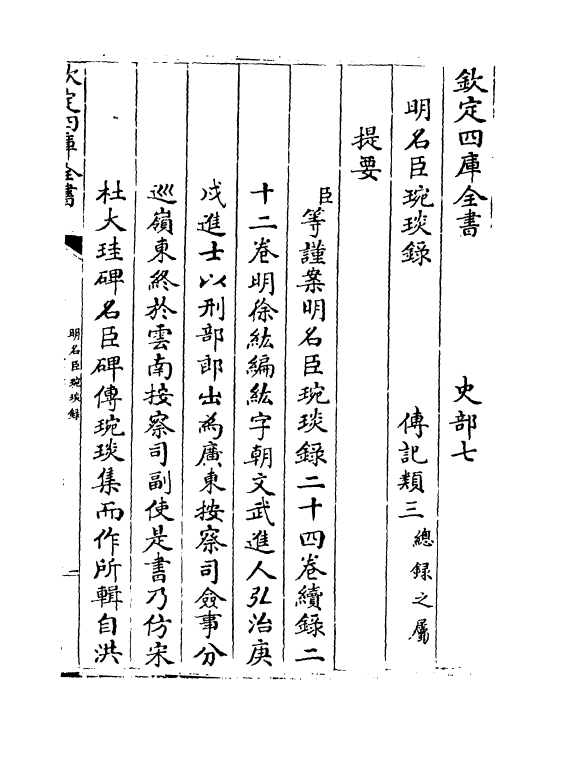 欽定四庫全書　史部七
明名臣琬琰録　傳記類三總録之屬
提要
臣等謹案明名臣琬琰録二十四卷續録二
十二卷明徐紘編紘字朝文武進人弘治庚
戌進士以刑部郎出為廣東按察司僉事分
巡嶺東終於雲南按察司副使是書乃仿宋
杜大珪碑名臣碑傳琬琰集而作所輯自洪
欽定四庫全書　明名臣琬琰録